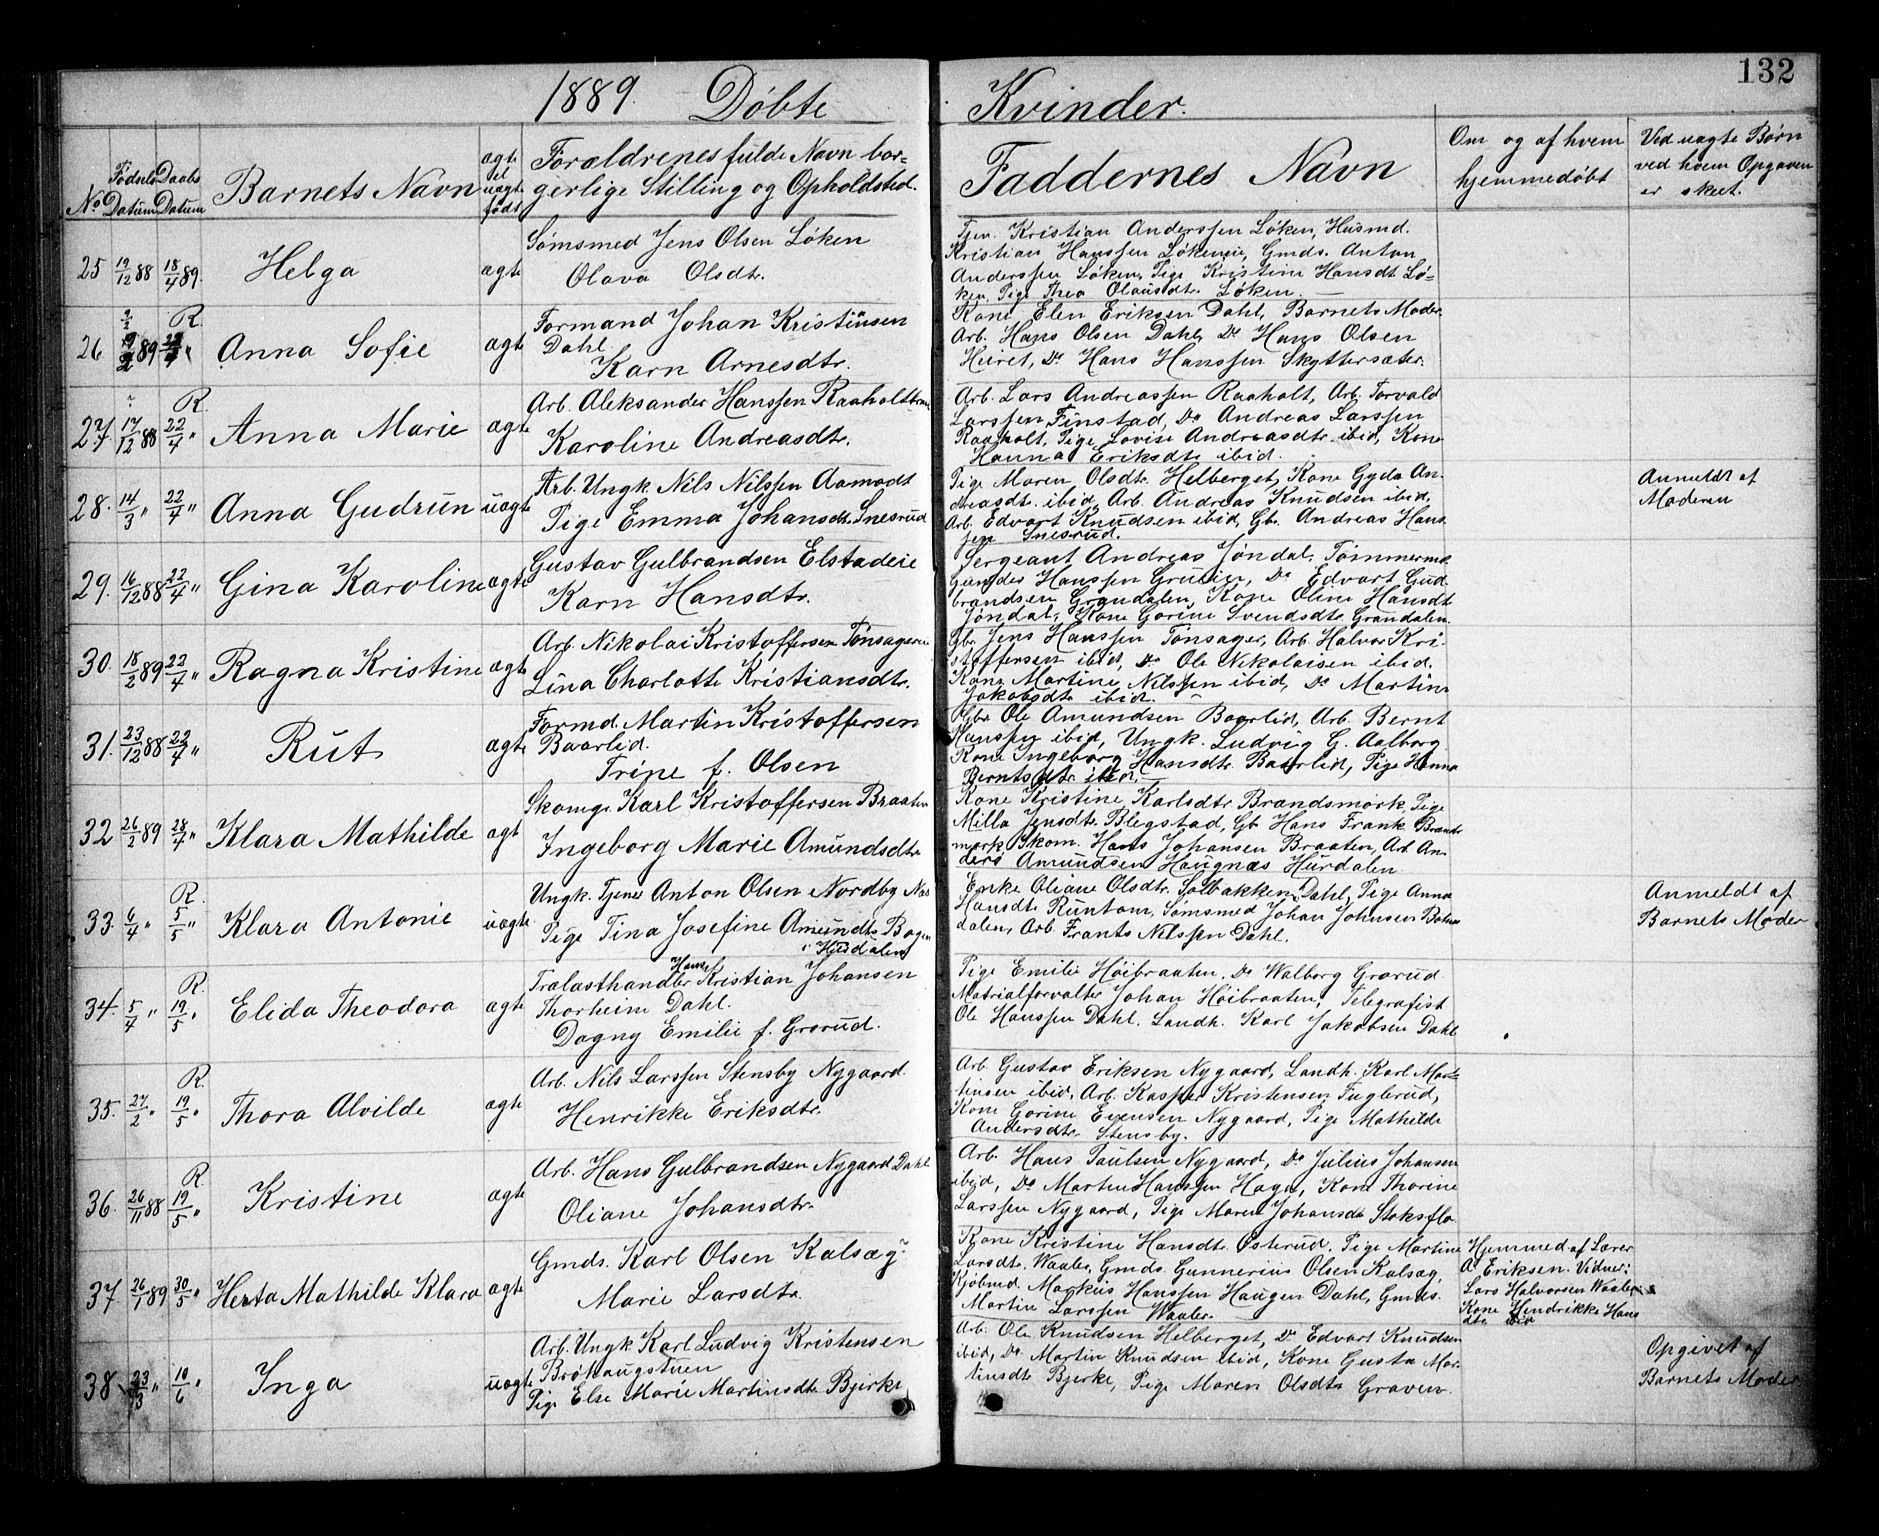 132
1889. Døbte Kvinder.
No
Fødsels Datum
Daabs Datum
Barnets Navn
ægte el uægte født
Forældrenes fulde Navn bor-
gerlige Stilling og Opholdsted.
Faddernes Navn
Om og af hvem
hjemmedøbt
Ved uægte Børn
ved hvem Opgaven
er skeet.
25 19/12 88 18/4 89. Helga ægte
Sømsmed Jens Olsen Løken
Olava Olsdtr.
Tjen. Kristian Anderssen Løken, Husmd.
Kristian Hanssen Løkeneie, Gmds. Anton
Anderssen Løken, Pige Kristine Hansdt Lø-
ken, Pige Thea Olausdtr. Løken
26 89 R. Anna Sofie ægte
Formand Johan Kristiansen
Dahl.
Karn Arnesdtr.
Kone Elen Eriksen Dahl, Barnets Moder.
Arb. Hans Olsen Dahl, Do Hans Olsen
Do Hans Hanssen Skyttersæter.
27. 17/12 88 R. 22/4 " Anna Marie ægte
Arb. Aleksander Hanssen
Karoline Andreasdtr.
Arb. Lars Andreassen Raaholt, Arb. Torvald
Larssen Finstad, Do Andreas Larssen
Raaholt, Pige Lovise Andreasdtr. ibid, Kone
Hanna Eriksdtr ibid.
28. 14/3 " 22/4 " Anna Gudrun uægte
Arb. Ungk. Nils Nilssen Aamodt
Pige Emma Johansdtr. Snesrud
Pige Maren Olsdtr. Helberget, Kone Gyda An-
dreasdt. ibid, Arb. Andreas Knudsen ibid,
Arb. Edvart Knudsen ibid, Gbr. Andreas Hans
sen Snesrud.
Anmeldt af
Moderen
29. 16/12 88 22/4 " Gina Karoline ægte
Gustav Gulbrandsen Elstadeie
Karn Hansdtr.
Sergeant Andreas Jøndal, Tømmermd.
Gunder Hanssen Do Edvart Gud
brandsen Grandalen, Kone Oline Hansdt
Jøndal, Kone Gorine Svendsdtr Grandalen.
30. 18/2 89 22/4 " Ragna Kristine ægte
Arb. Nikolai Kristoffersen
Lina Charlotte Kristiansdtr.
Gbr. Jens Hanssen Tønsager, Arb. Halvor Kri-
stoffersen ibid, Do Ole Nikolaisen ibid.
Kone Martine Nilssen ibid, Do Martine
Jakobsdt ibid.
31. 23/12 88 22/4 " Rut ægte
Formd. Martin Kristoffersen
Baarlid.
Trine f. Olsen
Gbr Ole Amundsen Baarlid, Arb. Bernt
Hanssen ibid, Ungk. Ludvig G. Aalborg
Kone Ingeborg Hansdtr. Baarlid, Pige Hanna
Berntsdtr ibid.
32 26/2 89 28/4 " Klara Mathilde ægt
Skomgr. Karl Kristoffersen Braaten
Ingeborg Marie Amundsdtr
Kone Kristine Karlsdtr Brandsmork, Pige
Milla Jensdtr. Blegstad, Gb Hans Frank Brands
mork, Skom. Hans Johansen Braaten, Arb. An-
ders Amundsen Haugnæs Hurdalen.
33. 6/4 " R. 5/5 " Klara Antonie uægte
Ungk. Tjener Anton Olsen Nordby
Pige Tina Josefine Amundtr.
i Hurdalen
Enke Oliane Olsdtr. Solbakken, Dahl, Pige Anna
Hansdt Runtom, Sømsmed Johan Johnsen
dalen, Arb. Frants Nilssen Dahl.
Anmeldt af
Barnets Moder
34. 5/4 " R. 19/5 " Elida Theodora ægte
Trælasthandler Hans Kristian Johansen
Thorheim Dahl.
Dagny Emilie f. Grorud.
Pige Emilie Høibraaten, Do Walborg Grorud
Matrialforvalter Johan Høibraaten, Telegrafist
Ole Hanssen Dahl. Landh. Karl Jakobsen Dahl
35. 27/2 " R. 19/5 " Thora Alvilde ægte
Arb. Nils Larssen Stensby Nygaard
Henrikke Eriksdtr.
Arb. Gustav Eriksen Nygaard, Landh. Karl Mar-
tinsen ibid, Arb. Kasper Kristensen Fuglerud,
Kone Gorine Evensen Nygaard, Pige Mathilde
Andersdtr. Stensby.
36. 26/11 88 R. 19/5 " Kristine ægte
Arb. Hans Gulbrandsen Nygaard Dahl
Oliane Johansdtr.
Arb. Hans Paulsen Nygaard, Do Julius Johansen
ibid, Do Martin Hanssen Haga, Kone Thorine
Larssen Nygaard, Pige Maren Johansdt Stoksflo
37. 26/1 89 30/5 " Herta Mathilde Klara ægte
Gmds. Karl Olsen Kalsæg
Marie Larsdtr.
Kone Kristine Hansdt. Østerud, Pige Martine
Larsdtr. Waaler, Gmds. Gunnerius Olsen Kalsæg,
Kjøbmd. Markus Hanssen Haugen Dahl, Gmds.
Martin Larssen Waaler.
Hjemmed af Lærer
A. Eriksen. Vidner:
Lars Halvorsen Waaler
Kone Hendrikke Hans
dtr ibid
38 23/3 " 10/6 " Inga uægte
Arb. Ungk Karl Ludvig Kristensen
Brøhaugstuen
Pige Else Marie Martinsdtr Bjerke
Arb. Ole Knudsen Helberget, Do Edvart Knudsen
ibid, Do Martin Knudsen ibid, Kone Gusta Mar-
tinsdtr Bjerke, Pige Maren Olsdtr Graven.
Opgivet af
Barnets Moder